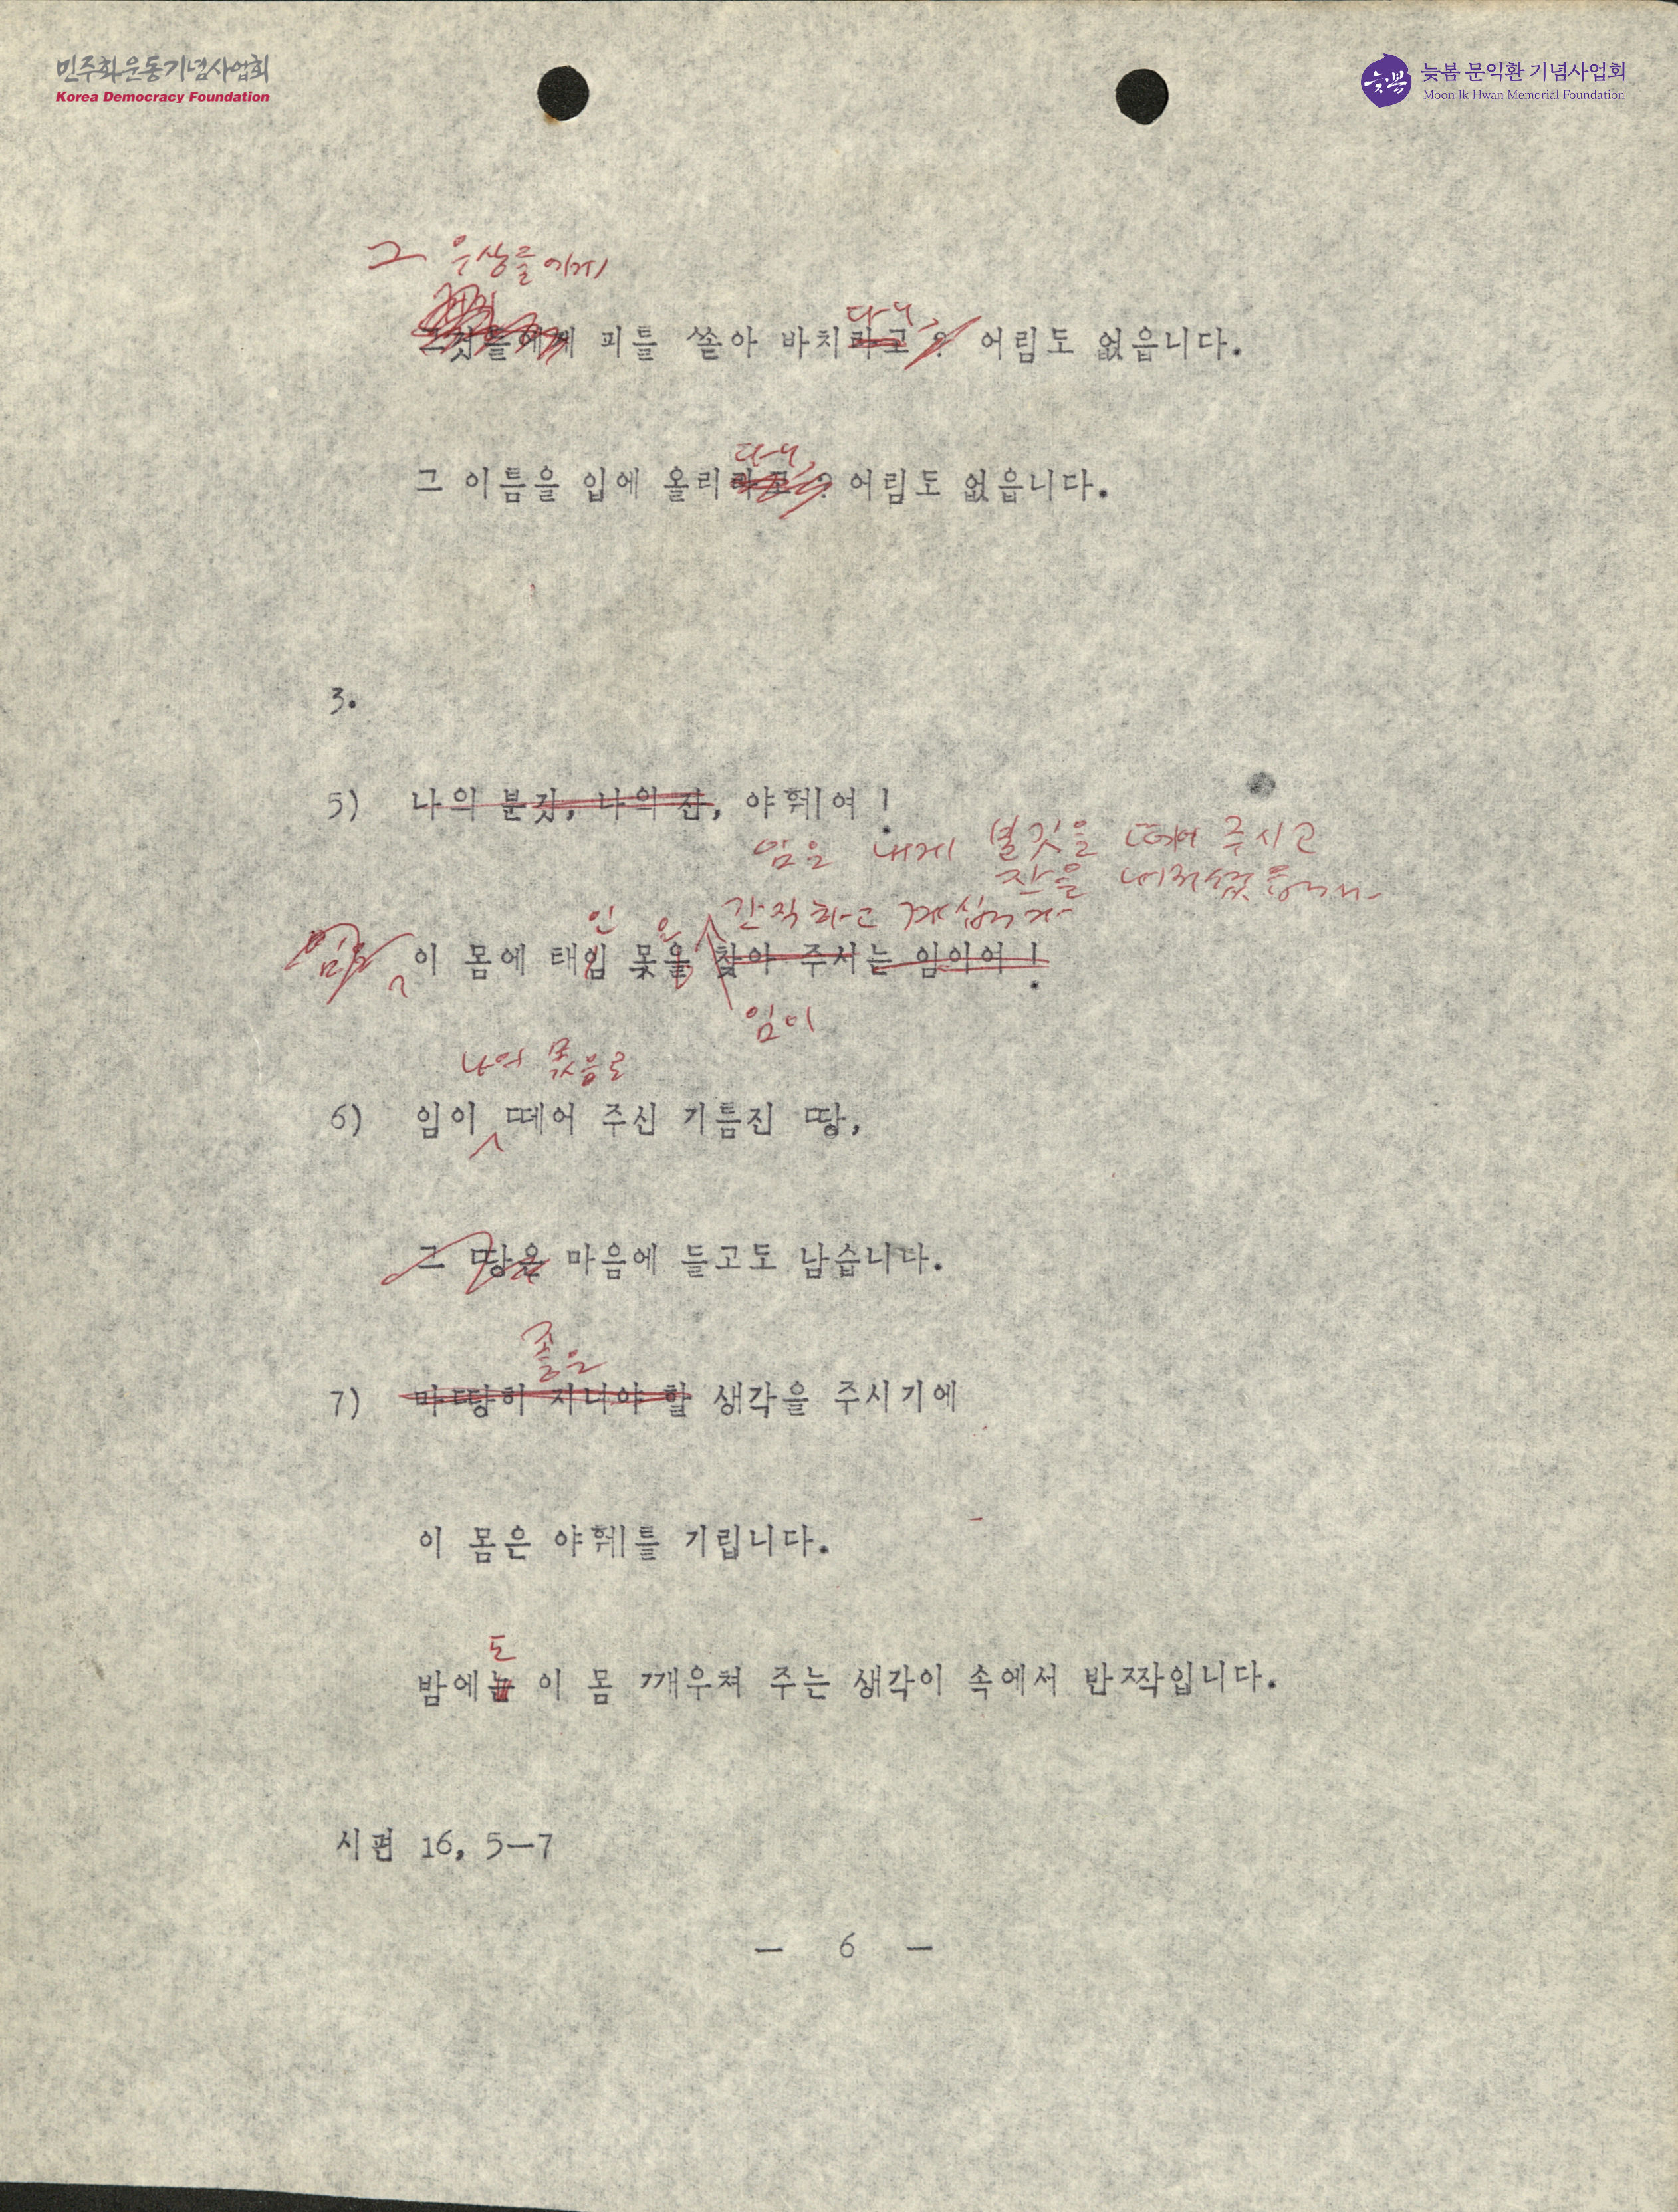 민주화운동기념사업회
Korea Democracy Foundation
늦봄
늦봄 문익환 기념사업회
Moon Ik Hwan Memorial Foundation
그 우상들에게
다니,
그것들에게 피를 쏟아 바치라고 ? 어림도 없읍니다.
다니,
그 이름을 입에 올리라고 ? 어림도 없읍니다.
3.
5) 나의 분깃, 나의 잔, 야훼여 !
임은 내게 분깃을 떼어 주시고
잔을 내려 읍니다
인 은 간직하고 계십니다
임은 이 몸에 태임 몫을 찾아 주시는 임이여 !
임이
나의 몫으로
6) 임이 떼어 주신 기름진 땅,
그 땅은 마음에 들고도 남습니다.
좋은
7) 마땅히 지녀야 할 생각을 주시기에
이 몸은 야훼를 기립니다.
도
밤에는 이 몸 깨우쳐 주는 생각이 속에서 반짝입니다.
시편 16, 5—7
— 6 —